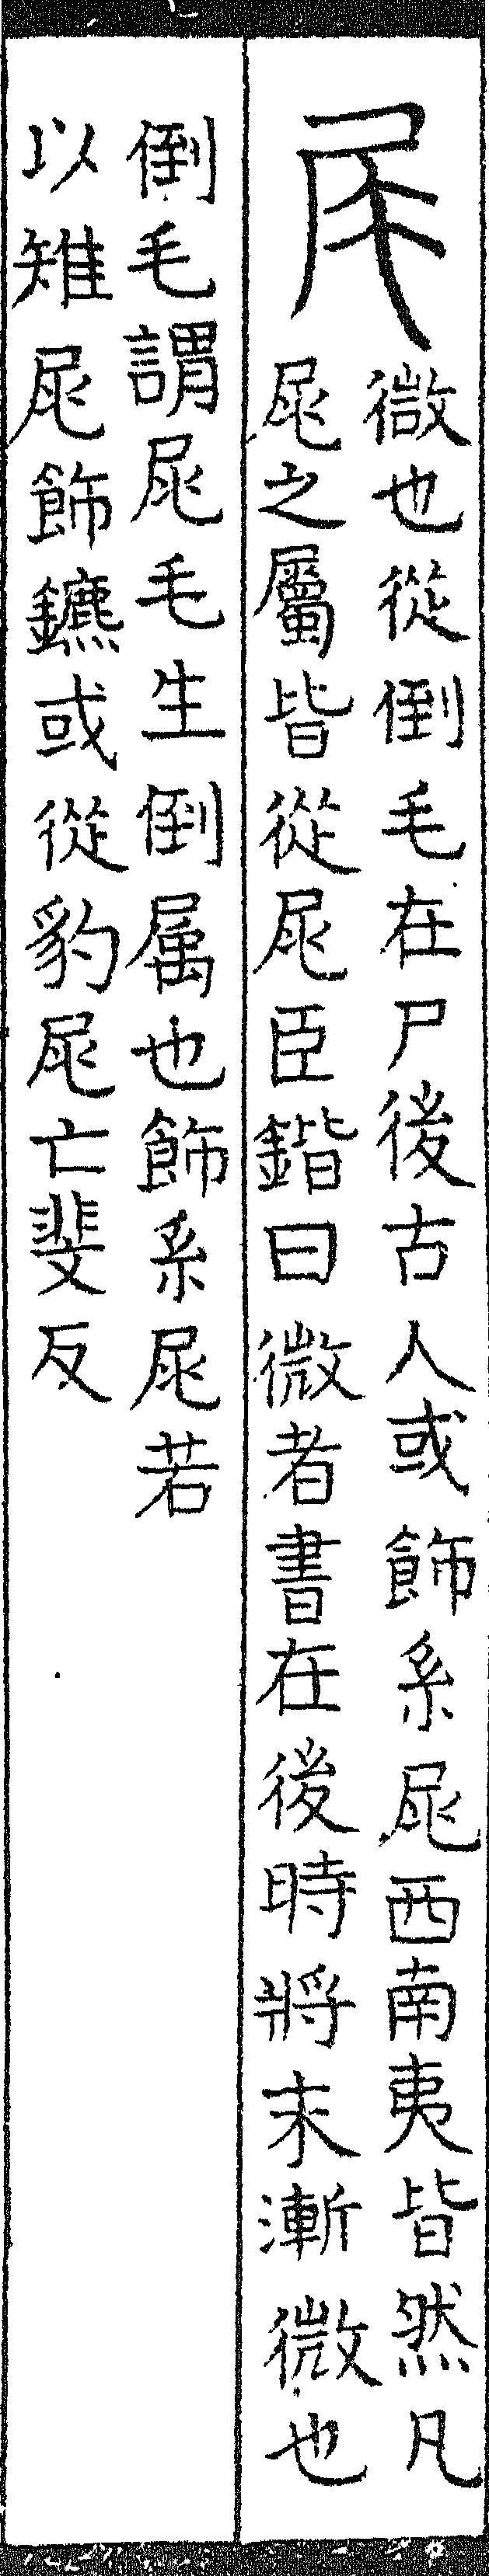 𡱒
微也從倒毛在尸後古人或飾系𡱒西南夷皆然凡
𡱒之屬皆從𡱒臣鍇曰微者書在後時將末漸微也
倒毛謂𡱒毛生倒属也飾系𡱒若
以雉𡱒飾鑣或從豹𡱒亡斐反